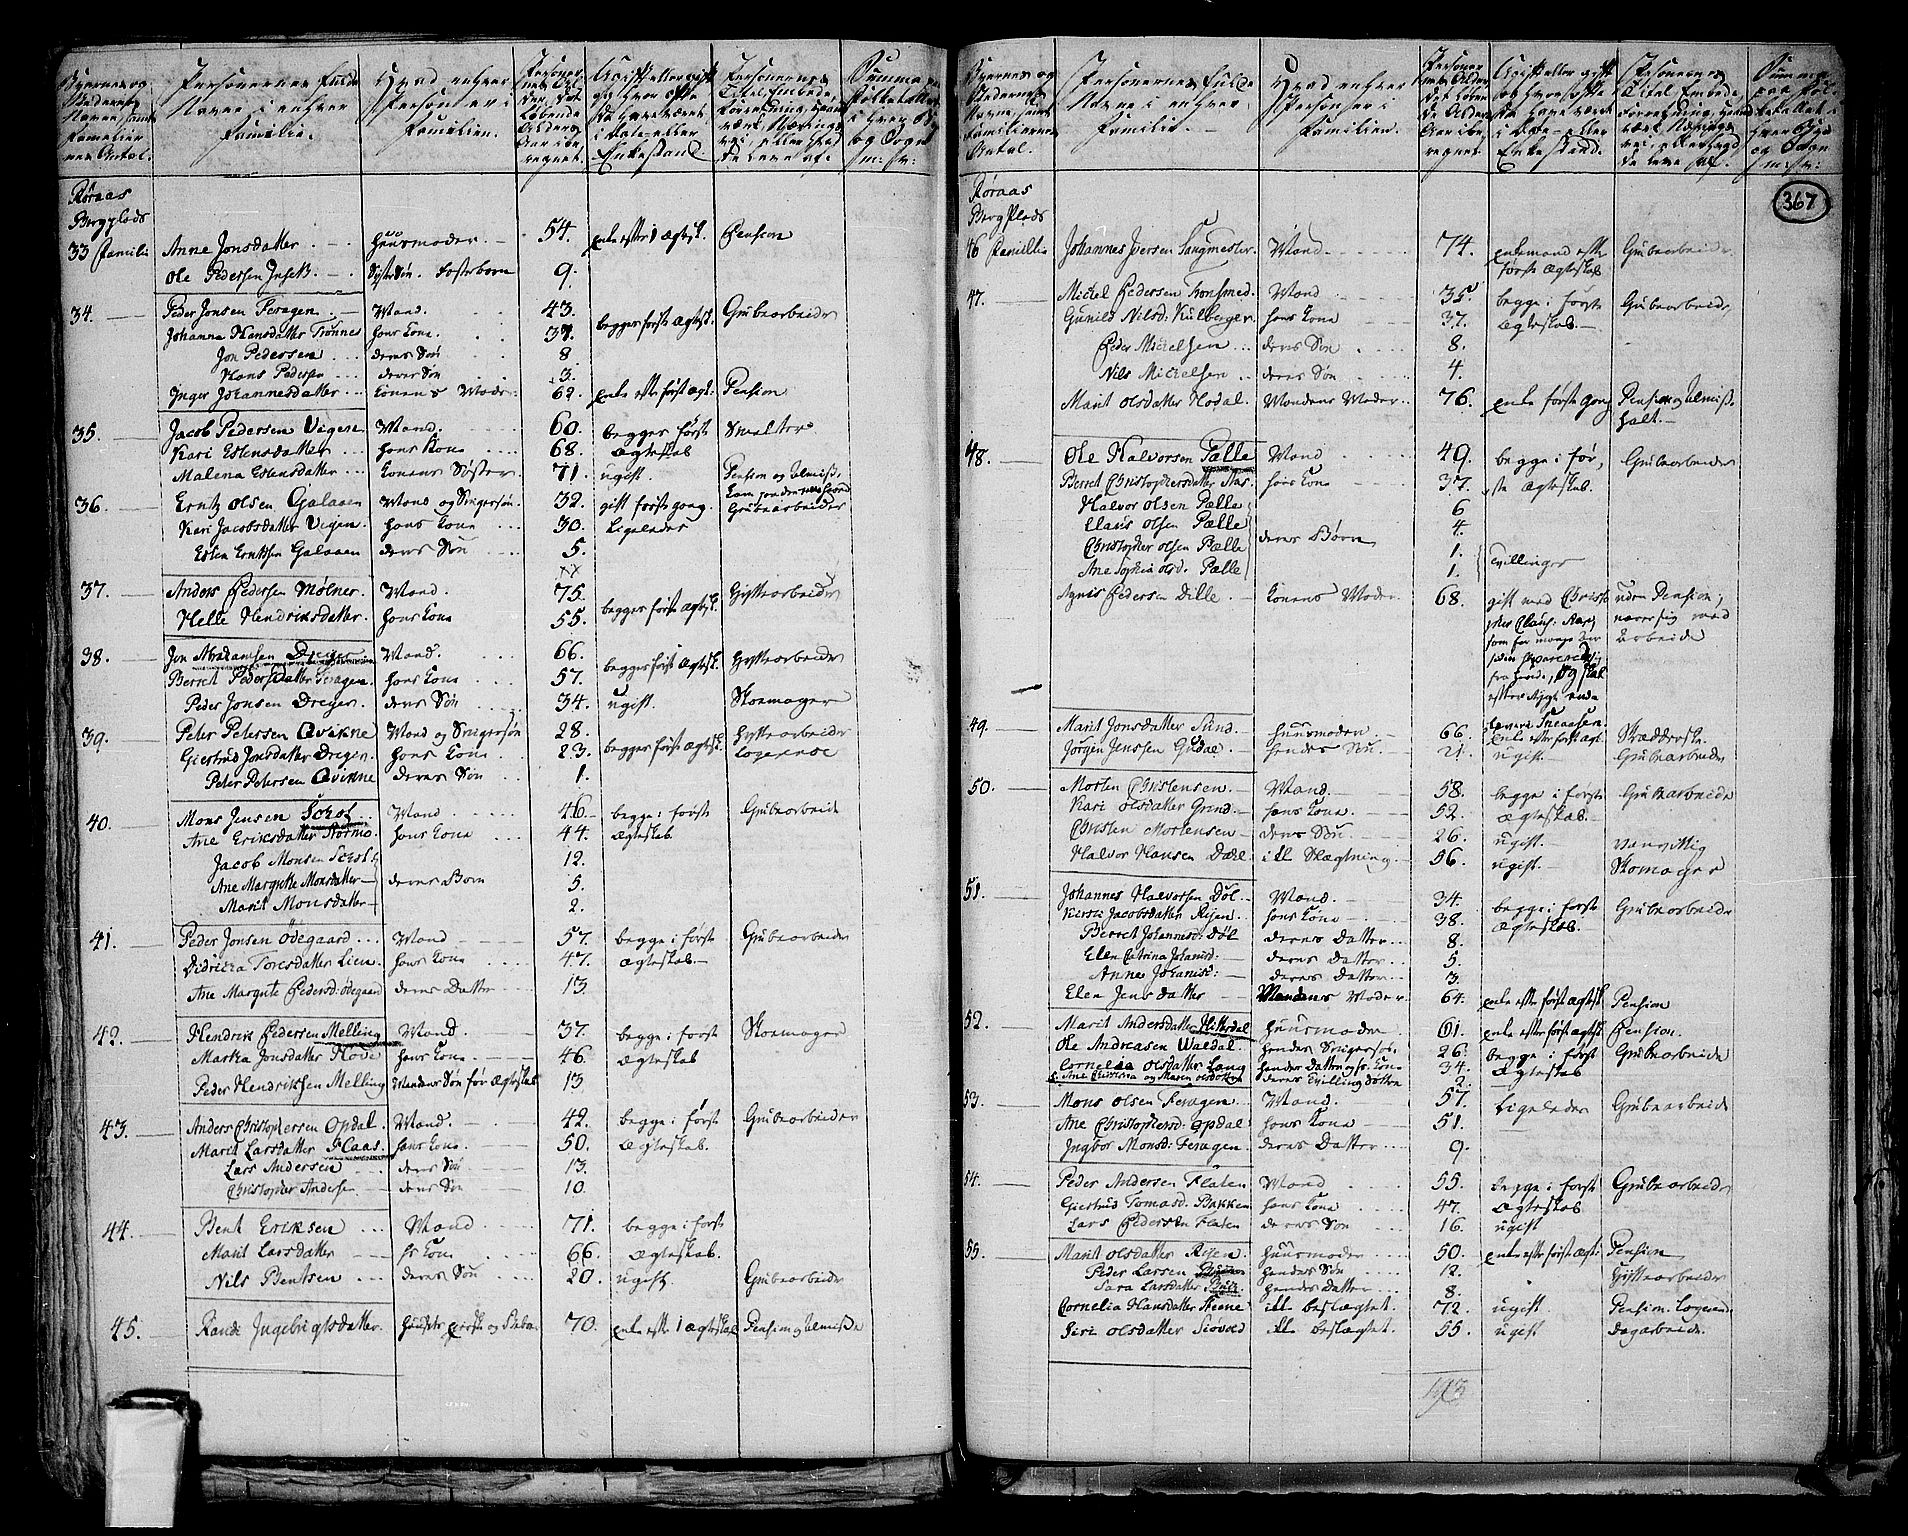 Byernes og Stedernes Navne, samt Familiernes Antal.
Personernes fulde Navne i enhver Familie.
Hvad enhver Person er i Familien.
Personernes Alder, det løbende Alders Aar iberegnet.
Ugift eller gift og hvor ofte de have været i Egte- eller Enkestand.
Personernes Titel, Embede, Forretning, Haandværk, Næringsvei, eller hvad de leve af.
Røraas
Bergplads
33 Familie Anne Jonsdatter Huusmoder 54. Enke efter 1 Ægtesk. Pension
Ole Pedersen Fosterbarn 9.
34. Peder Jonsen Feragen Mand. 43. begges første Ægtesk. Grubearbeider
Johanna Hansdatter Trønnes hans Kone. 37.
Jon Pedersen deres Søn 8
Hans Pedersen deres Søn 3.
Inger Johannesdatter Konens Moder 62. Enke efter først Ægt: Pension
35. Jacob Pedersen Vigen Mand. 60. begges først Smelter
Kari Estensdatter hans Kone 68. Ægteskab
Malena Estensdatter Konens Søster 71. ugift. Pension og Almisse,
36. Erntz Olsen Galaaen Mand og Svigersøn 32. gift første gang Grubearbeider
Kari Jacobsdatter Vigen hans Kone 30. Ligeledes
Esten Erntzen Galaaen deres Søn 5.
37. Anders Pedersen Mølner Mand. 75. begges først Ægtesk. Hyttearbeider
Helle Hendriksdatter. hans Kone 55.
38. Jon Abrahamsen Dreyer Mand. 66. begges først Ægtesk. Hyttearbeider
Berret Pedersdatter Feragen hans Kone 57.
Peder Jonsen Dreyer deres Søn 34. ugift. Skoemager
39. Peter Petersen Qvikne Mand og Svigersøn 28. begges først Ægtesk. Hyttearbeider
Giertrud Jonsdatter Dreyer hans Kone 23. Logerende
Peter Petersen Qvikne deres Søn 1.
40. Mons Jensen Schot Mand 46. begge i første Grubearbeide
Ane Eriksdatter Stormo. hans Kone 44. Ægteskab
Jacob Monsen Schot 12.
Ane Margrette Monsdatter deres Børn 5.
Marit Monsdatter 2.
41. Peder Jonsen Ødegaard Mand 57. begge i først Grubearbeider
Didricka Toresdatter Lien hans Kone 47. Ægteskab
Ane Margrete Pedersd: Ødegaard deres Datter 13
42. Hendrik Pedersen Melling Mand. 37. begge i først Skoemager
Marta Jonsdatter Hode hans Kone. 46. Ægteskab
Peder Hendriksen Melling Mandens Søn før Ægteskab 13
43. Anders Christophersen Opdal Mand. 42. begge i først Grubearbeider
Marit Larsdatter Claas. hans Kone. 50. Ægteskab.
Lars Andersen deres Søn 13.
Christopher Andersen deres Søn 10.
44. Bent Eriksen Mand 71. begge i først
Marit Larsdatter hs Kone 66. Ægteskab.
Nils Bentsen deres Søn 20. ugift. Grubearbeider
45. Randi Ingebrigtsdatter 70. Enke efter 1 Ægteskab Pension og Almisse
367
Byernes og Stedernes Navne, samt Familiernes Antal.
Personernes fulde Navne i enhver Familie.
Hvad enhver Person er i Familien.
Røraas
Berg Plads
46 Familie Johannes Iversen Sangmester Mand 74. Enkemand efter første Ægteskab Grubearbeider
47. Mickel Pedersen Tronsmed. Mand 35. begge i første Grubearbeider
Gunild Nilsd: Kulberger. hans Kone 37. Ægteskab.
Peder Mickelsen deres Søn 8.
Nils Mickelsen deres Søn 4.
Marit Olsdatter Hodal. Mandens Moder. 76. Enke første gang Pension og Almisse.
48. Ole Halvorsen Pælle Mand 49. begge i før, Grubearbeider
Berret Christophersdatter Aas. hans Kone 37. ste Ægteskab.
Halvor Olsen Pælle 6
Claus Olsen Pælle 4.
Christopher Olsen Pælle deres Børn 1. tvillinger
Ane Sophia Olsd: Pælle 1.
Agnis Pedersen Dille Konens Moder 68. gift med Christo uden Pension,
pher Claus: Aas, nærer sig med
som for mange Aar Arbeide
siden
49. Marit Jonsdatter Sund. Huusmoder 66. Enke efter først Ægt. Spædderske
Jørgen Jenssen Gudal hendes Søn 21. ugift. Grubearbeider
50. Morten Christensen. Mand. 58. begge i først Grubearbeide
Kari Olsdatter Grind. hans Kone. 52. Ægteskab.
Christen Mortensen deres Søn 26. ugift. vanvittig
Halvor Hansen Dahl. ikke Slægtning 56. ugift. Skomager
51. Johannes Halvorsen Døl Mand. 34. begge i først Grubearbeide
Kirsti Jacobsdatter Rijen hans Kone 38. Ægteskab.
Berret Johannesd: Døl deres Datter 8.
Elen Catrina Johanisd: deres Datter 5.
Anne Johanisd: deres Datter 3.
Elen Jensdatter Mandens Moder 64. Enke efter først Ægtesk. Pension
52. Marit Andersdatter Hitterdal Huusmoder 61. Enke efter først Ægtesk. Pension.
Ole Andreasen Waldal. hendes Svigersøn. 26. begge i først Grubearbeide
Cornelia Olsdatter Lang hendes Datter og hs. Kone 34. Ægteskab
Ane Christina og Maren Olsdøttre deres Tvilling Døttre 2.
53. Mons Olsen Feragen Mand. 57. Ligeledes Grubearbeide
Ane Christophersd: Opdal hans Kone 51.
Ingbor Monsd: Feragen. deres Datter 9.
54. Peder Andersen Flaten Mand 55. begge i først Grubearbeider
Giertrud Tomasd: Bakken hans Kone 47. Ægteskab
Lars Pedersen Flaten deres Søn 16. ugift
55. Marit Olsdatter Rijen. Huusmoder 50. Enke efter først Ægt: Pension
Peder Larsen hendes Søn 12. Hytteearbeider
Sara Larsdatter hendes Datter 8.
Cornelia Hansdatter Steene ikke beslægtet. 72. ugift Pension. Logerende
Siri Olsdatter Siøvold ikke beslægtet. 55. ugift Dagarbeide.
193